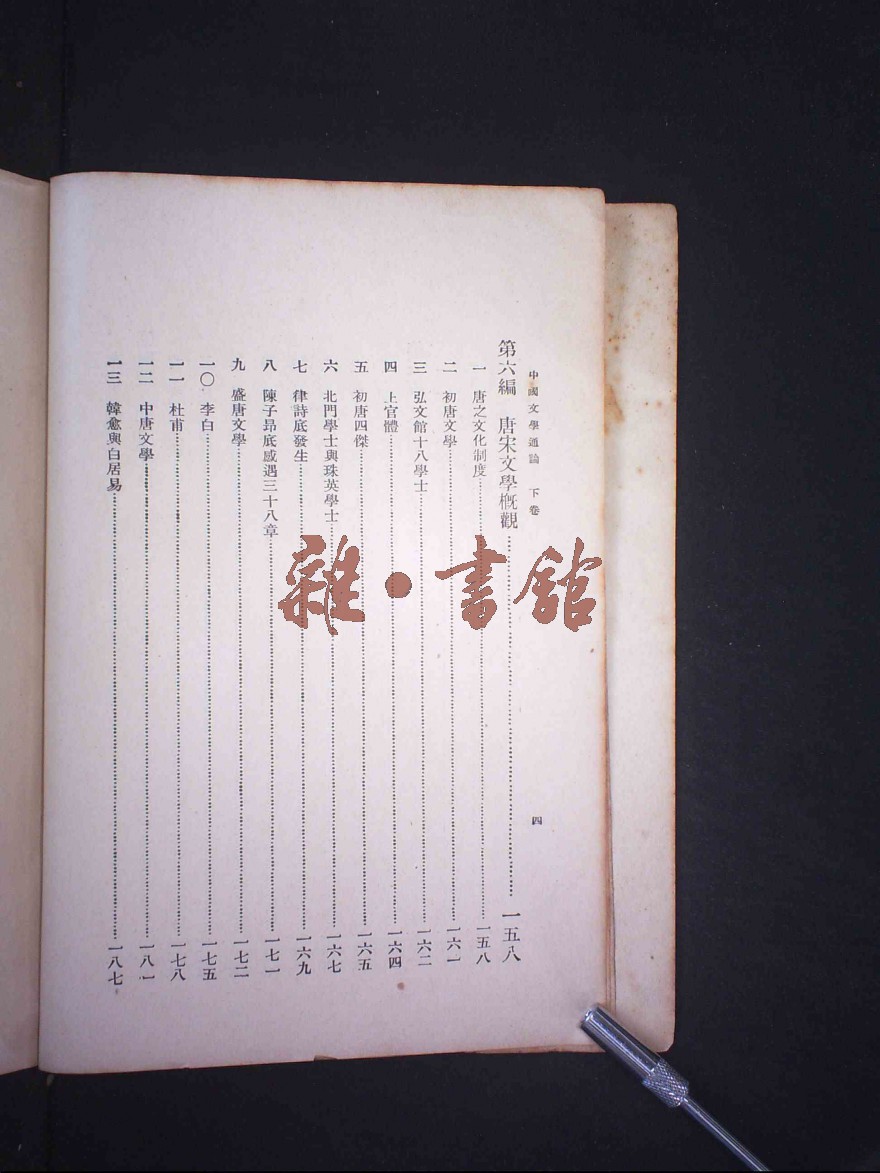 中國文學通論 下卷 四
第六編 唐宋文學概觀……一五八
一 唐之文化制度……一五八
二 初唐文學……一六一
三 弘文館十八學士……一六二
四 上官體……一六四
五 初唐四傑……一六五
六 北門學士與珠英學士……一六七
七 律詩底發生……一六九
八 陳子昂底感遇三十八章……一七一
九 盛唐文學……一七二
一〇 李白……一七五
一一 杜甫……一七八
一二 中唐文學……一八一
一三 韓愈與白居易……一八七
雜·書館